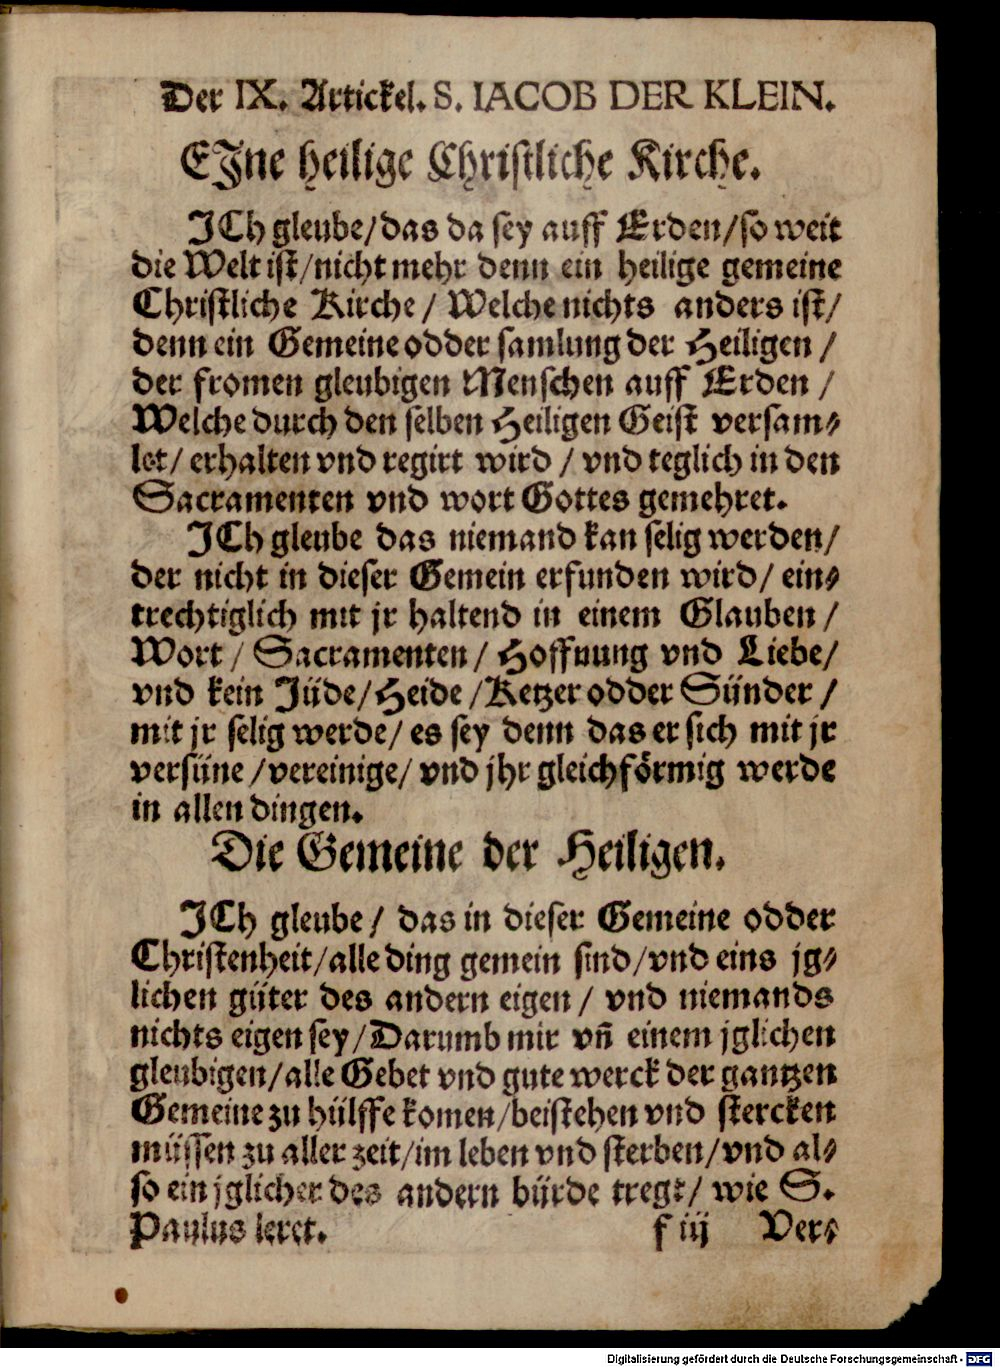 Der IX. Artickel. S. IACOB DER KLEIN.
EJne heilige Christliche Kirche.
JCh gleube/das da sey auff Erden/so weit
die Welt ist/nicht mehr denn ein heilige gemeine
Christliche Kirche/ Welche nichts anders ist/
denn ein Gemeine odder samlung der Heiligen/
der fromen gleubigen Menschen auff Erden/
Welche durch den selben Heiligen Geist versam⸗
let/ erhalten vnd regirt wird/ vnd teglich in den
Sacramenten vnd wort Gottes gemehret.
JCh gleube das niemand kan selig werden/
der nicht in dieser Gemein erfunden wird/ ein⸗
trechtiglich mit jr haltend in einem Glauben/
Wort/ Sacramenten/ Hoffnung vnd Liebe/
vnd kein Jüde/Heide/Ketzer odder Sünder/
mit jr selig werde/ es sey denn das er sich mit jr
versüne/vereinige/ vnd jhr gleichförmig werde
in allen dingen.
Die Gemeine der Heiligen.
JCh gleube/ das in dieser Gemeine odder
Christenheit/alle ding gemein sind/vnd eins jg⸗
lichen güter des andern eigen/ vnd niemands
nichts eigen sey/Darumb mir vñ einem jglichen
gleubigen/alle Gebet vnd gute werck der gantzen
Gemeine zu hülffe komen/beistehen vnd stercken
müssen zu aller zeit/im leben vnd sterben/vnd al⸗
so ein jglicher des andern bürde tregt/ wie S.
Paulus leret. f iij Ver⸗
Digitalisierung gefördert durch die Deutsche Forschungsgemeinschaft - DFG